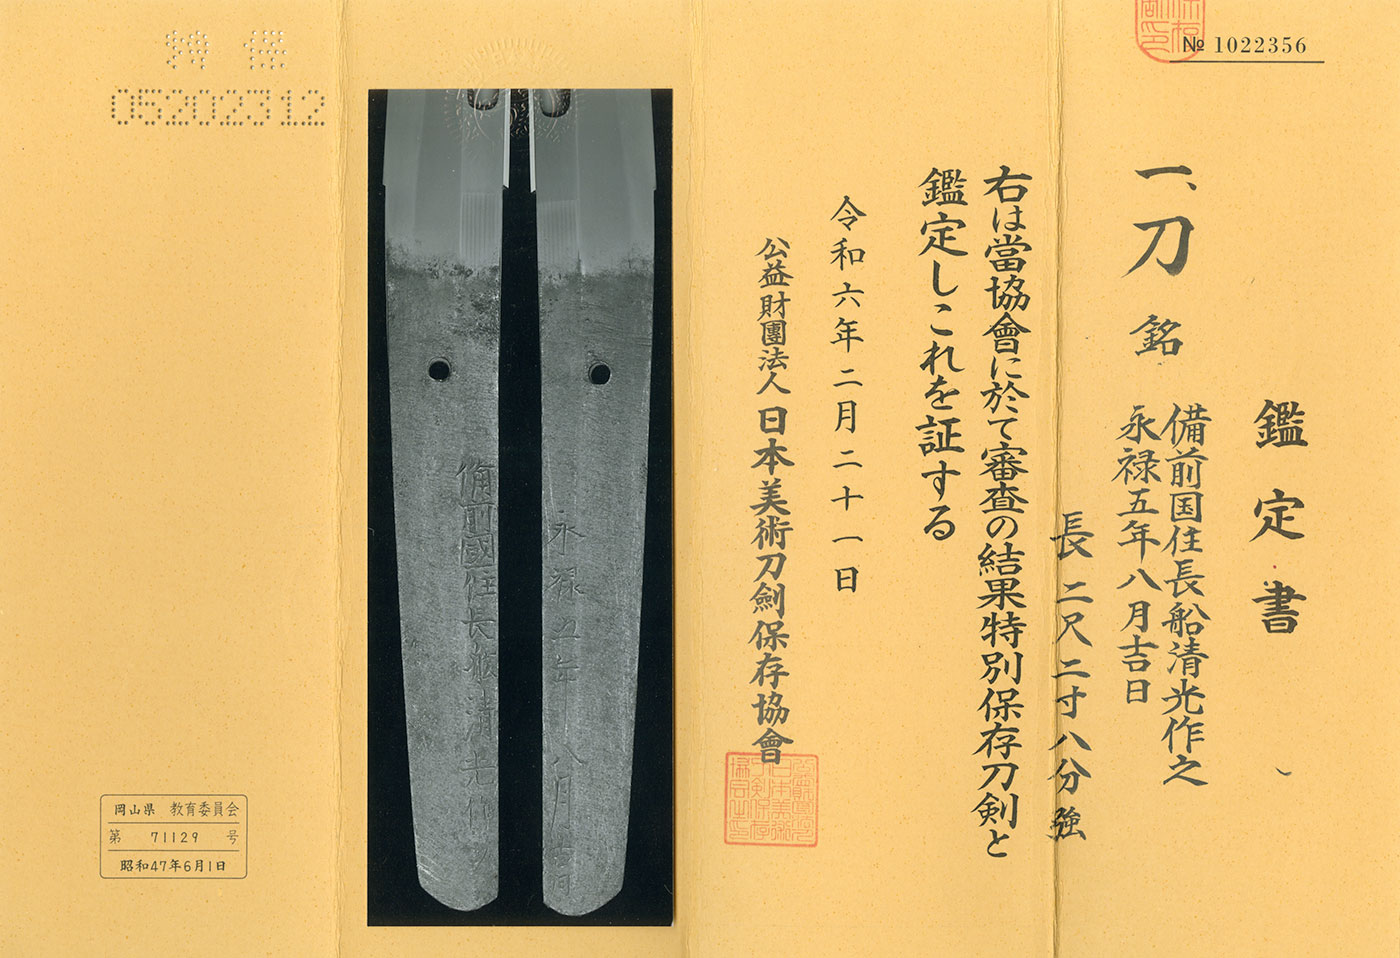 № 1022356
鑑定書
一、刀 銘 備前国住長船清光作之
永禄五年八月吉日
長二尺二寸八分強
右は當協會に於て審査の結果特別保存刀剣と
鑑定しこれを証する
令和六年二月二十一日
公益財團法人 日本美術刀劍保存協會
備前國住長舩清光作之
永禄五年八月吉日
特 保
05202312
岡山県 教育委員会
第 71129 号
昭和47年6月1日